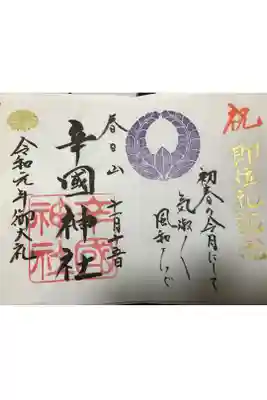 祝
即位礼
初春の令月にして
氣淑く
風和らぎ
十一月十五日
春日山
辛國神社
辛國神社
令和元年御大礼